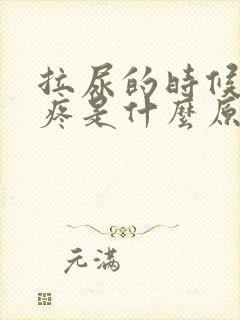 拉尿的時候
疼是什麼原
元满